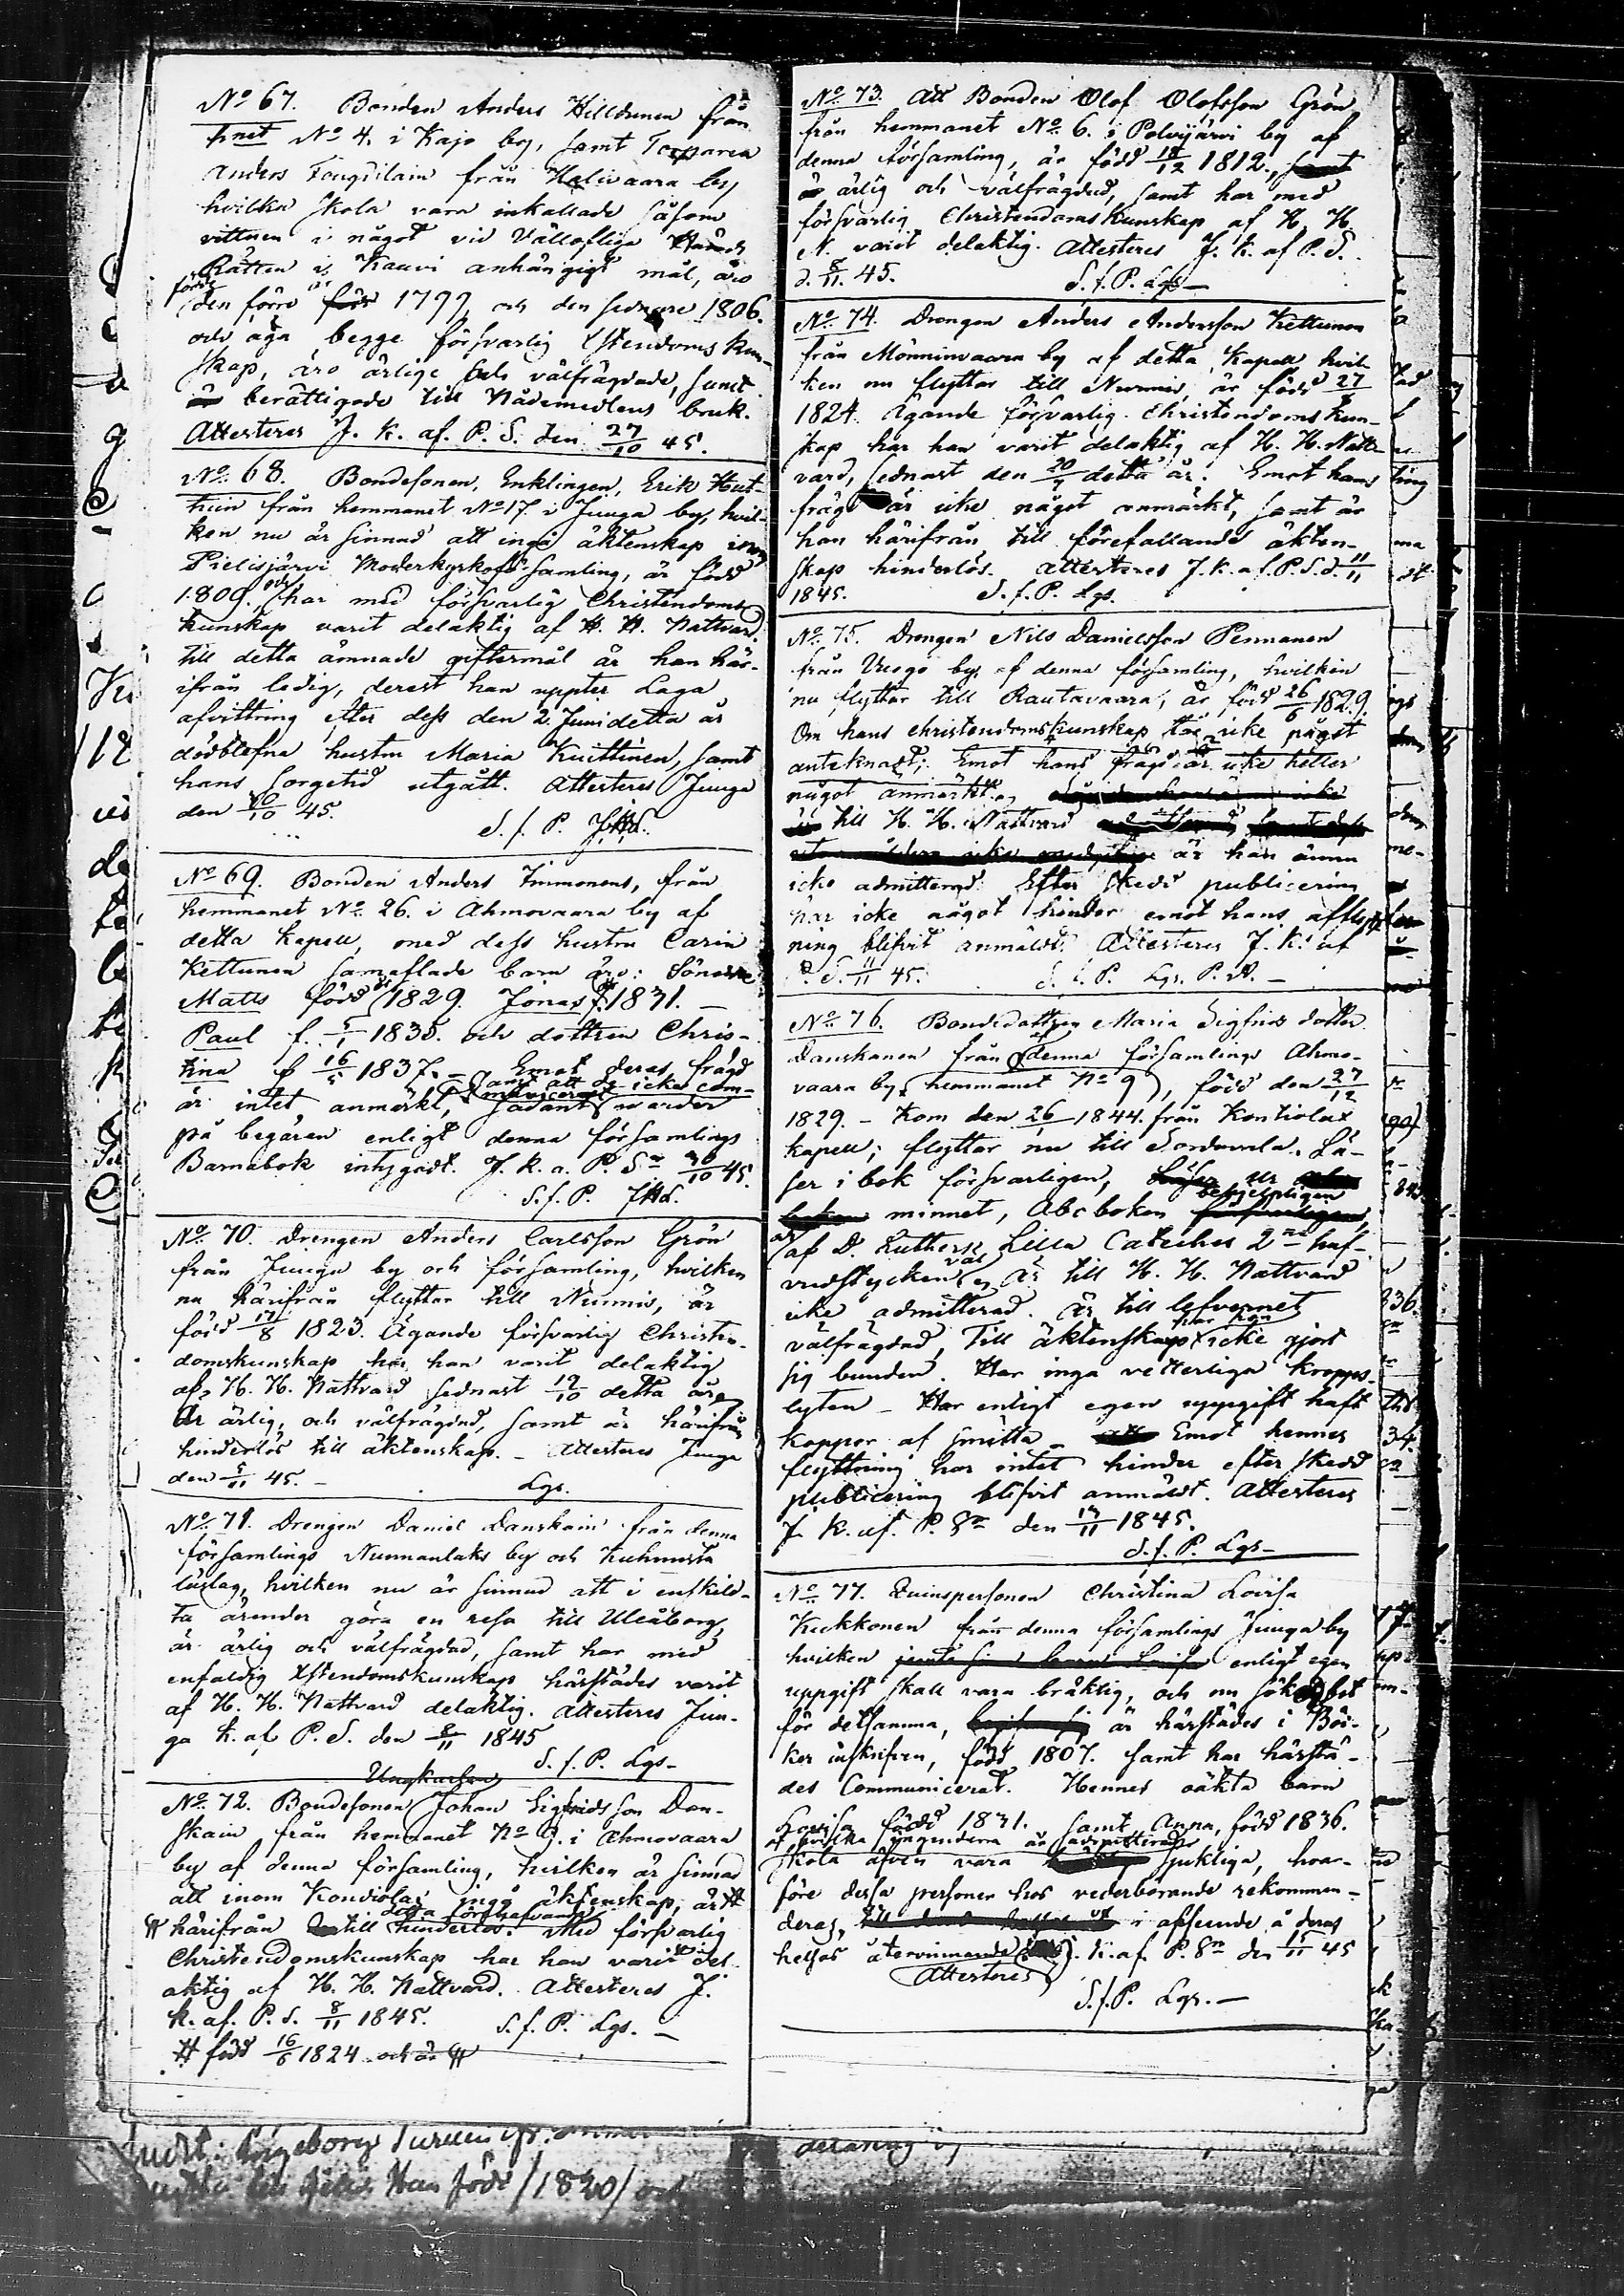 No 67. Bonden Anders Hilldunen från
hnet No 4. i Kajo by, samt Torparen
Anders Tougilain från Halivaara by
hvilka skola vara inkallade såsom
vittnen i något vid Vällofliga Härads
Rätten i Kaavi anhängigt mål, äro
födde
den förre 1799 och den sednare 1806.
och äga begge försvarlig Xstendoms kun-
skap, äro ärlige och välfrägdade, samt
berättigade till Nådemedlens bruk.
Attesteres J. K. af. P. S. den 27/10 45.
No 68. Bondesonen, Enklingen, Erik Hut-
tuin från hemmanet No 17 i Juuga by, hvil-
ken nu är sinnad att ingå äktenskap inom
Pielisjärvi Moderkyrkoförsamling, är född
1809. och har med försvarlig Christendoms
kunskap varit delaktig af H. H. Nattvard.
till detta ämnade giftermål är han här-
ifrån ledig, derest han uppter Laga
afvittring efter dess den 2. Juni detta år
dödblefna hustru Maria Kuittinen, samt
hans sorgetid utgått. Attesteres Juuga
den 30/10 45.
S. f. P. JHL.
No 69. Bonden Anders Immonens, från
hemmanet No 26. i Ahmovaara by af
detta Kapell, med dess hustru Carin
Kettunen samaflade barn äro: Sönerne
Matts född 1829. Jonas f. 1831. —
Paul f. 5/1 1835. och dottren Chris-
tina f 16/5 1837. — Emot deras frägd
samt att de icke com-
municerat
är intet anmärkt, sådant warder
på begäran enligt denna församlings
Barnabok intygadt. J. K. a. P. Sn 30/10 45.
S. f. P. JHL.
No 70. Drengen Anders Carlsson Grön
från Juuga by och församling, hvilken
nu härifrån flyttar till Nurmis, är
född 17/8 1823. Ägande försvarlig Christen-
domskunskap har han varit delaktig
af H. H. Nattvard sednast 19/10 detta år,
är ärlig, och välfrägdad, samt är härifrån
hinderlös till äktenskap. — Attesteres Juuga
den 5/11 45. —
Lgs.
No 71. Drengen Daniel Danskain från denna
församlings Nunnanlaks by och Kuhnusta
luslag, hvilken nu är sinnad att i enskild-
ta ärender göra en resa till Uleåborg,
är ärlig och välfrägdad, samt har med
enfaldig Xstendomskunskap härstädes varit
af H. H. Nattvard delaktig. Attesteres Juu-
ga K. af P. S. den 8/11 1845
S. f. P. Lgs —
Ungkarlen
No 72. Bondesonen Johan Sigfridsson Dan-
skain från hemmanet No 9. i Ahmovaara
by af denna församling, hvilken är sinnad
att inom Kondiolax ingå äktenskap, är #
detta förehafvande
# härifrån till hinderlös. Med försvarlig
Christendomskunskap har han varit del-
aktig af H. H. Nattvard. Attesteres J.
K. af. P. S. 8/11 1845.
S. f. P. Lgs. —
# född 16/6 1824 och är #
No 73. Att Bonden Olof Olofsson Grön
från hemmanet No 6. i Polvijärvi by af
denna församling, är född 18/12 1812., samt
är ärlig och välfrägdad, samt har med
försvarlig Christendoms Kunskap af H. H.
N. varit delaktig. Attesteres J. K. af P. S.
d. 8/11. 45.
S. f. P. Lgs —
No 74. Drengen Anders Andersson Kettunen
från Mönninvaara by af detta Kapell hvil-
ken nu flyttar till Nurmis, är född 27/
1824. Ägande försvarlig Christendoms kun-
skap har han varit delaktig af H. H. Natt-
vard, sednast den 20/7 detta år. Emot hans
frägd är icke något anmärkt, samt är
han härifrån till förefallande äkten-
skap hinderlös. Attesteres J. K. af. P. S. d. 11/11
1845.
S. f. P. Lgs.
No 75. Drengen Nils Danielsson Pennanen
från Vuogo by af denna församling, hvilken
nu flyttar till Rautavaara, är född 26/6 1829.
Om hans christendomskunskap är icke något
anteknadt; Emot hans frägd är icke heller
något anmärkt.
till H. H. Nattvard
är han ännu
icke admitterad. Efter skedd publicering
har icke något hinder emot hans afflytt-
ning blifvit anmäldt. Attesteres J. K. af
P. S. 11/11 45.
S. f. P. Lgs. P. A. —
No 76. Bondedottren Maria Sigfrids dotter
Danskanen från denna församlings Ahmo-
vaara by, hemmanet No 9, född den 27/12
1829. — Kom den 26/1 1844. från Kontiolax
kapell; flyttar nu till Sordavala. Lä-
ser i bok försvarligen, ur
behjelpligen
minnet, Abc boken
af D. Luthers Lilla Catechis 2ne huf-
vudstycken, är till H. H. Nattvard
icke admitterad. Är till lefvernet
har hon
välfrägdad, till äktenskap icke gjort
sig bunden. Har inga vetterliga kropps-
lyten — Har enligt egen uppgift haft
koppor af smitta — Emot hennes
flyttning har intet hinder efter skedd
publicering blifvit anmäldt. Attesteres
J. K. af. P. Sn den 13/11 1845.
S. f. P. Lgs —
No 77. Quinspersonen Christina Lovisa
Kukkonen från denna församlings Juuga by
hvilken enligt egen
uppgift skall vara bråklig, och nu söker bot
för detsamma, är härstädes i Böc-
ker inskrifven, född 1807. samt har härstä-
des Communicerat. Hennes oäkta barn
Lovisa född 1831. samt Anna, född 1836.
af hvilka ingendera är admitterad
skola äfven vara sjukliga, hvar-
före dessa personer hos vederbörande rekommen-
deras, i afseende å deras
helsas återvinnande J. K. af. P. Sn den 15/11 45
Attesteres
S. f. P. Lgs. —
Ingeborg Turunen
född /1820/